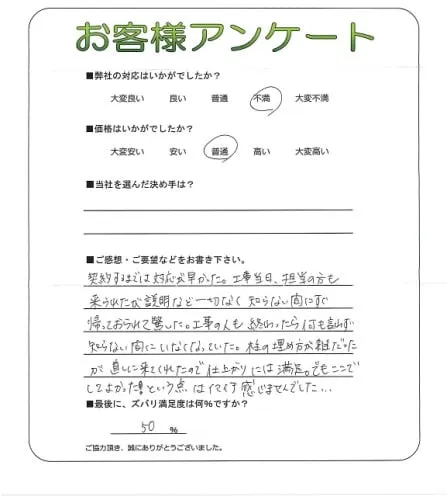 お客様アンケート
■弊社の対応はいかがでしたか？
大変良い 良い 普通 不満 大変不満
■価格はいかがでしたか？
大変安い 安い 普通 高い 大変高い
■当社を選んだ決め手は？
■ご感想・ご要望などをお書き下さい。
契約するまでは対応が早かった。工事当日、担当の方も
来られたが説明など一切なく知らない間にすぐ
帰っておられて驚いた。工事の人も終わったら何も言わず
知らない間にいなくなっていた。柱の埋め方が雑だった
が直しに来てくれたので仕上がりには満足。でもここで
してよかった!という点は感じませんでした...
■最後に、ズバリ満足度は何%ですか？
50 %
ご協力頂き、誠にありがとうございました。